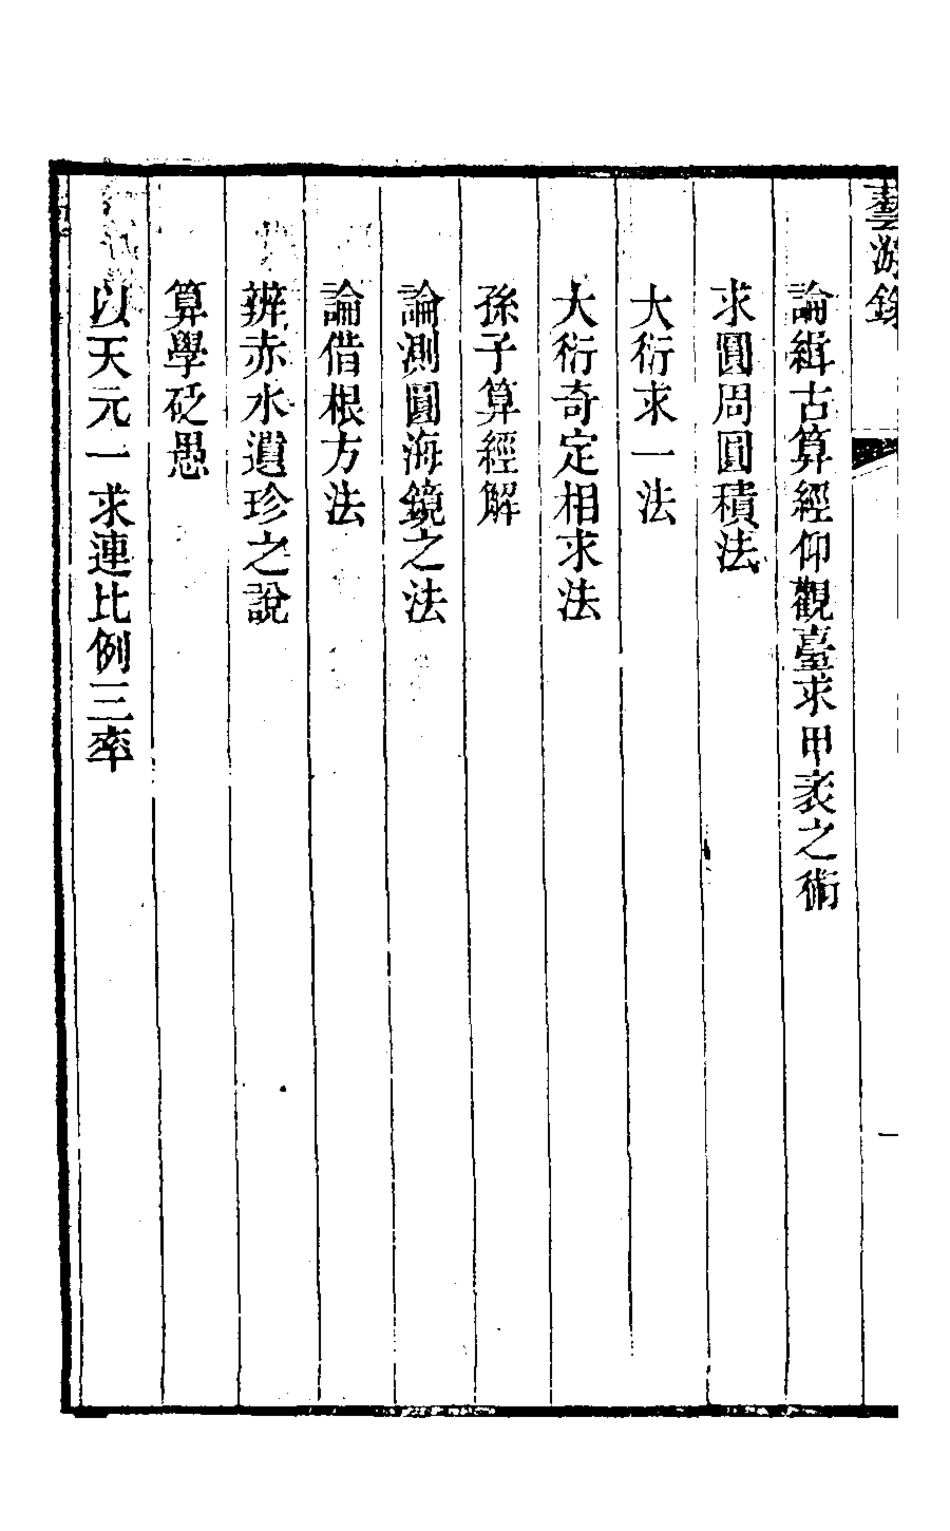 藝游錄
一
論緝古算經仰觀臺求甲袤之術
求圓周圓積法
大衍求一法
大衍奇定相求法
孫子算經解
論測圓海鏡之法
論借根方法
辨赤水遺珍之說
算學砭愚
以天元一求連比例三率